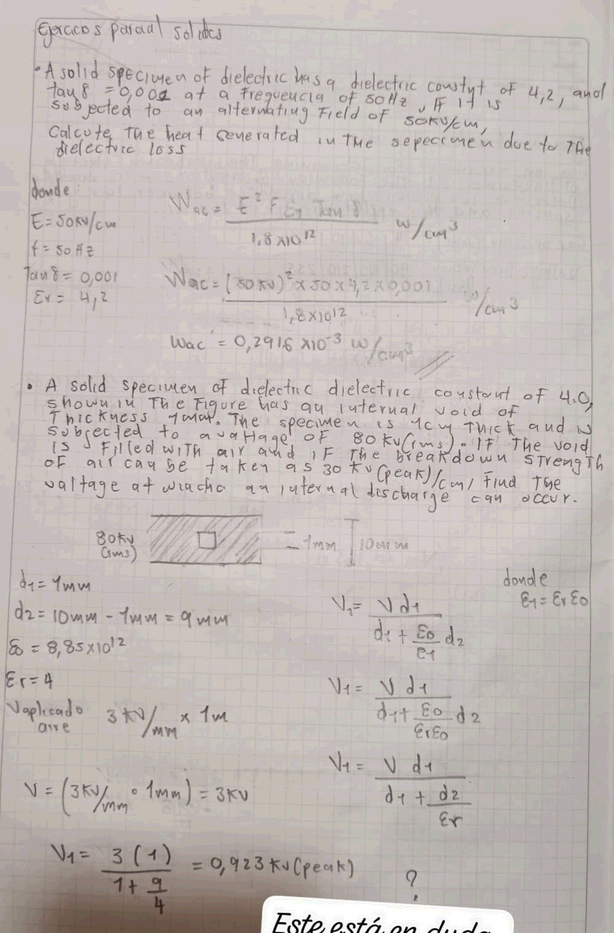 Ejercicios para al solidos
• A solid specimen of dielectric has a dielectric constyt of 4,2, and
tan δ = 0,001 at a frequencia of 50Hz. If it is
subjected to an alternating field of 50kV/cm,
Calcute the heat generated in the sepecimen due to the
dielectric loss
donde
E = 50kV/cm
f = 50 Hz
Tan δ = 0,001
Er = 4,2
Wac = E² F Er Tan δ / 1,8 x10¹² W/cm³
Wac = (50 kV)² x 50 x 4,2 x 0,001 / 1,8x10¹² W/cm³
Wac = 0,2916 x10⁻³ W/cm³
• A solid specimen of dielectric dielectric constant of 4.0,
shown in The Figure has an internal void of
Thickness 1mm. The specimen is 1cm thick and is
subjected to a valtage OF 80 kV(rms). IF The void
is filled with air and if The breakdown strength
OF air can be taken as 30 kV(peak)/cm, Find The
valtage at wiacho an internal discharge can occur.
80kV
(rms)
1mm
10mm
d1 = 1mm
d2 = 10mm - 1mm = 9mm
ε0 = 8,85x10¹²
Er = 4
Vaplicado
aire
3 kV/mm x 1m
V = (3kV/mm • 1mm) = 3kV
donde
ε1 = εr ε0
V1 = V d1 / d1 + ε0/ε1 d2
V1 = V d1 / d1 + ε0/εrε0 d2
V1 = V d1 / d1 + d2/εr
V1 = 3(1) / 1 + 9/4 = 0,923 kV(peak)
?
Este está en duda